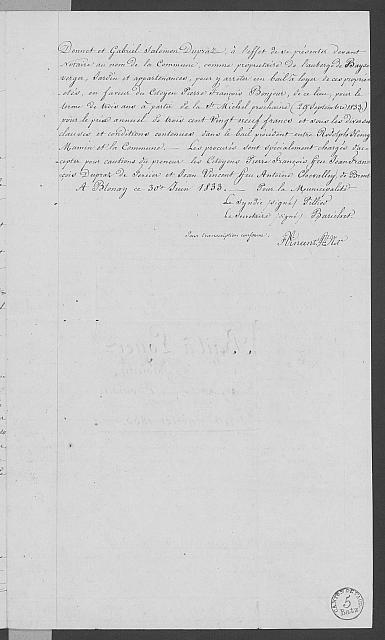 Donnet et Gabriel Salomon Dupraz, à l'effet de se présenter devant
Notaire au nom de la Commune, comme propriétaire de l'auberge de
verger, Jardin et appartenances, pour y arrêter un bail à loyer de ces proprié-
tés, en faveur du Citoyen Pierre François Bonjour, de ce lieu, pour le
terme de trois ans à partir de la St. Michel prochaine (29 septembre 1833)
pour le prix annuel de trois cent Vingt neuf francs et sous les diverses
clauses et conditions contenues dans le bail précédent entre Rodolphe Henry
Mamin et la Commune. — Les procurés sont spécialement chargés d'ac-
cepter pour cautions du preneur les Citoyens Pierre François feu Jean Fran-
cois Dupraz de et Jean Vincent feu Antoine Chevalley, de Brent
A Blonay ce 30e Juin 1833. — Pour la Municipalité
Le Syndic (signé)
Le Secrétaire (signé)
Pour transcription conforme:
Vincent Not
CANTON DE VAUD
5
Batz